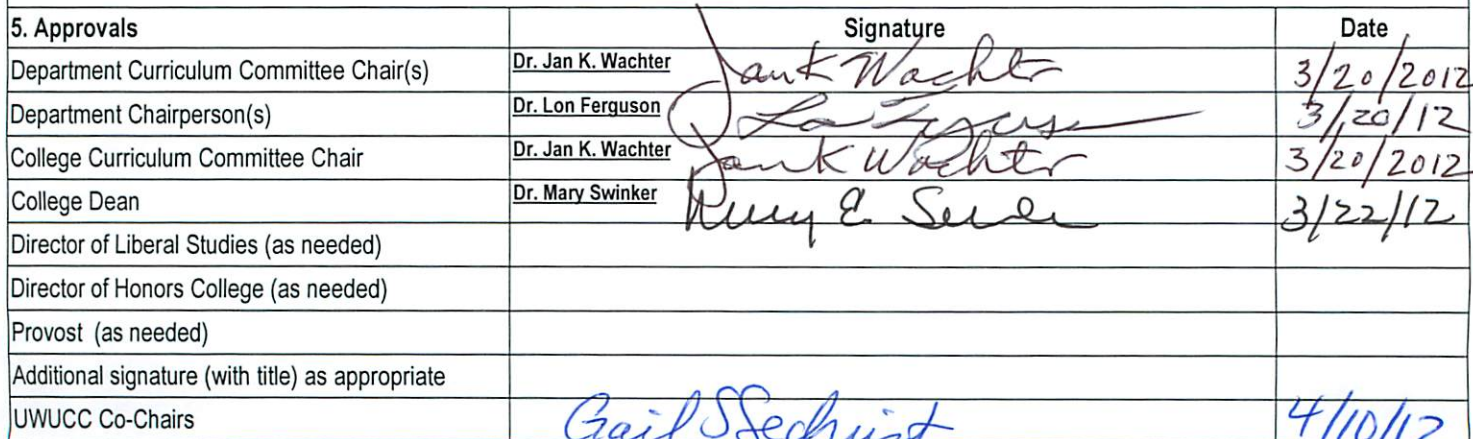 5. Approvals Signature Date
Department Curriculum Committee Chair(s) Dr. Jan K. Wachter Jan K Wachter 3/20/2012
Department Chairperson(s) Dr. Lon Ferguson Lon Ferguson 3/20/12
College Curriculum Committee Chair Dr. Jan K. Wachter Jan K Wachter 3/20/2012
College Dean Dr. Mary Swinker Mary E. Swinker 3/22/12
Director of Liberal Studies (as needed)
Director of Honors College (as needed)
Provost (as needed)
Additional signature (with title) as appropriate
UWUCC Co-Chairs Gail S Sechrist 4/10/12